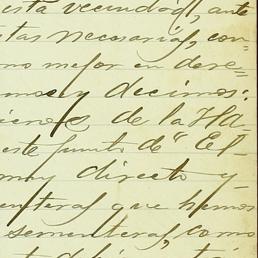 esta vecindad, ante
tas necesarias, con-
no mejor en dere=
mse y decimos:
ienes de la Ha-
este punto de "El
muy directo y
enteras que hemos
sementeras, como